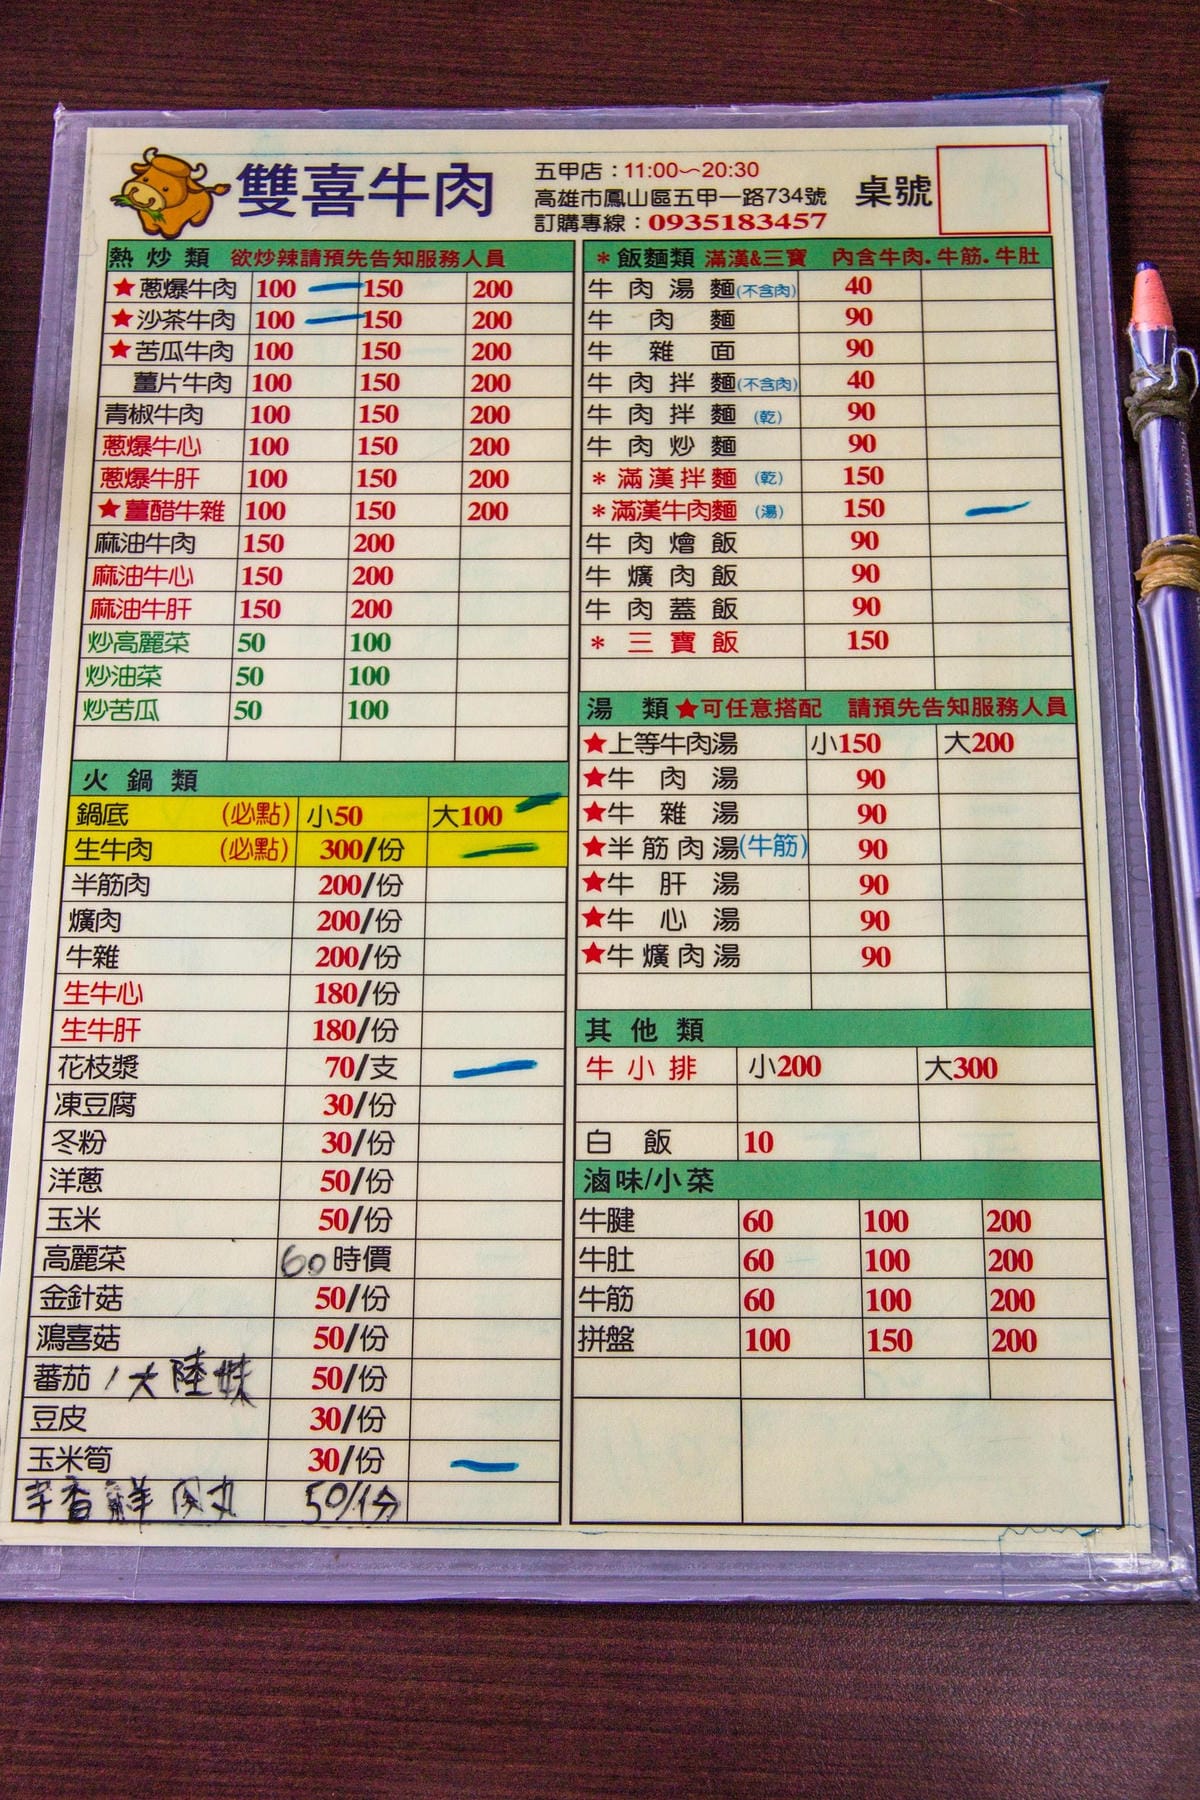 雙喜牛肉
五甲店：11:00～20:30
高雄市鳳山區五甲一路734號
訂購專線：0935183457
桌號
熱炒類 欲炒辣請預先告知服務人員
★蔥爆牛肉 100 150 200
★沙茶牛肉 100 150 200
★苦瓜牛肉 100 150 200
薑片牛肉 100 150 200
青椒牛肉 100 150 200
蔥爆牛心 100 150 200
蔥爆牛肝 100 150 200
★薑醋牛雜 100 150 200
麻油牛肉 150 200
麻油牛心 150 200
麻油牛肝 150 200
炒高麗菜 50 100
炒油菜 50 100
炒苦瓜 50 100
火鍋類
鍋底 (必點) 小50 大100
生牛肉 (必點) 300/份
半筋肉 200/份
爌肉 200/份
牛雜 200/份
生牛心 180/份
生牛肝 180/份
花枝漿 70/支
凍豆腐 30/份
冬粉 30/份
洋蔥 50/份
玉米 50/份
高麗菜 60時價
金針菇 50/份
鴻喜菇 50/份
蕃茄/大陸妹 50/份
豆皮 30/份
玉米筍 30/份
芋香鮮肉丸 50/份
*飯麵類 滿漢&三寶 內含牛肉.牛筋.牛肚
牛肉湯麵(不含肉) 40
牛肉麵 90
牛雜面 90
牛肉拌麵(不含肉) 40
牛肉拌麵(乾) 90
牛肉炒麵 90
*滿漢拌麵(乾) 150
*滿漢牛肉麵(湯) 150
牛肉燴飯 90
牛爌肉飯 90
牛肉蓋飯 90
*三寶飯 150
湯類 ★可任意搭配 請預先告知服務人員
★上等牛肉湯 小150 大200
★牛肉湯 90
★牛雜湯 90
★半筋肉湯(牛筋) 90
★牛肝湯 90
★牛心湯 90
★牛爌肉湯 90
其他類
牛小排 小200 大300
白飯 10
滷味/小菜
牛腱 60 100 200
牛肚 60 100 200
牛筋 60 100 200
拼盤 100 150 200